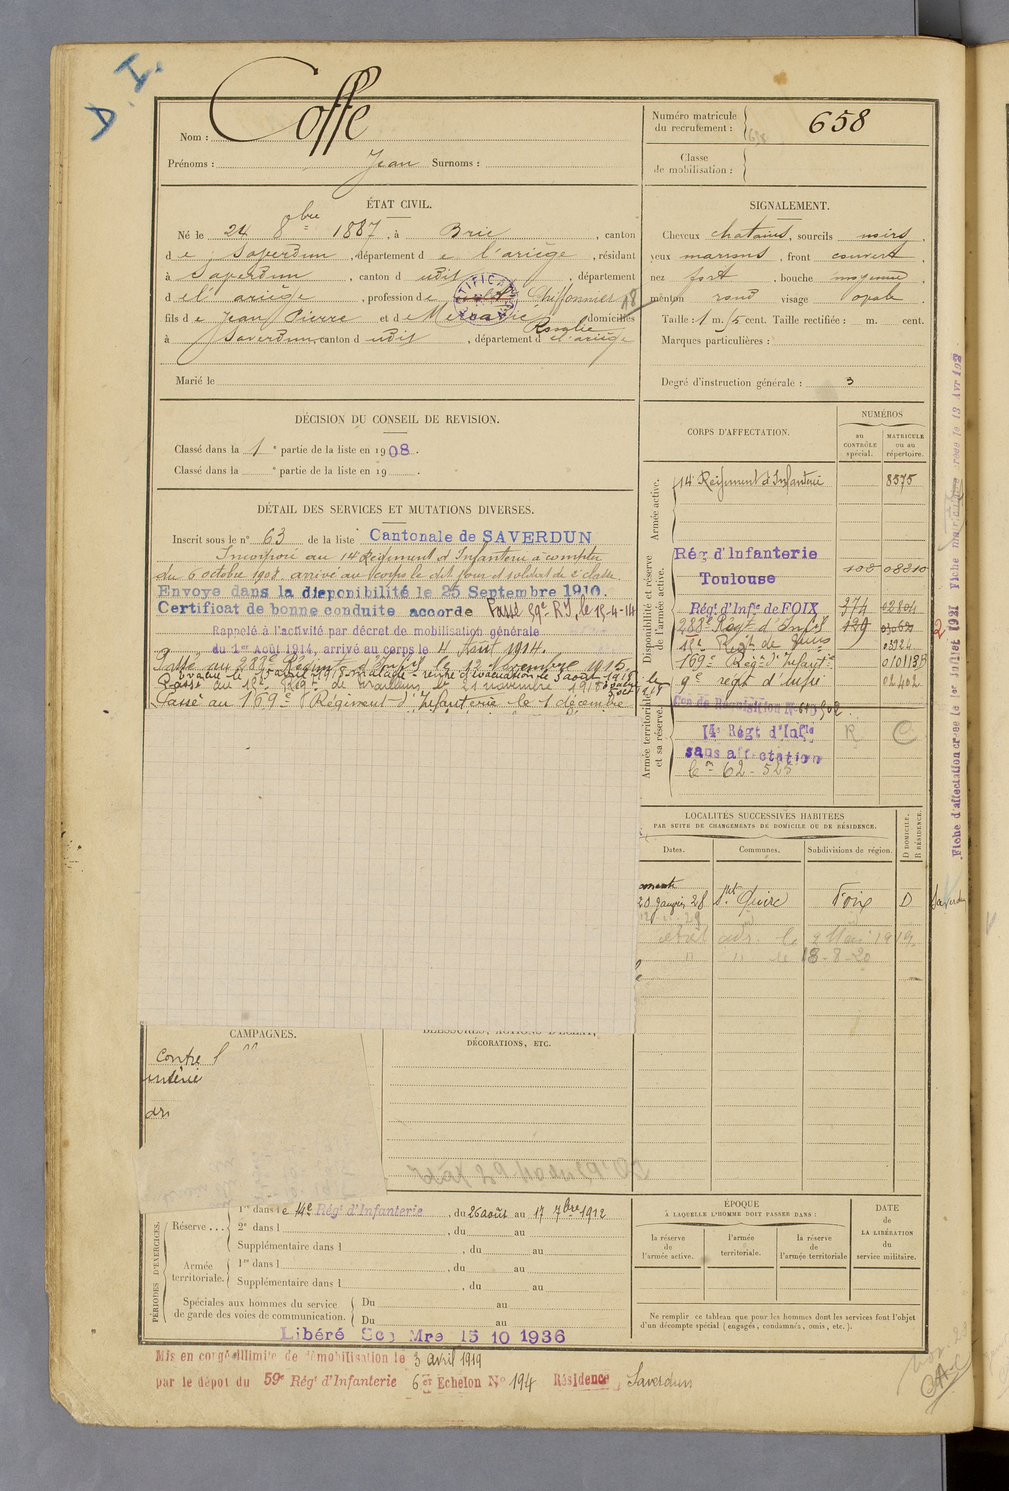 D. I.
Nom : Coffe
Prénoms : Jean Surnoms :
Numéro matricule
du recrutement :
658
Classe
de mobilisation :
ÉTAT CIVIL.
Né le 24 8bre 1887, à Brie, canton
de Saverdun, département de l'ariège, résidant
à Saverdun, canton d udit, département
de l'ariège, profession de Chiffonnier 18
fils de Jean Pierre et de domiciliés
Rosalie
à Saverdun canton d udit, département de l'ariège
Marié le
SIGNALEMENT.
Cheveux chatains, sourcils noirs,
yeux marrons, front couvert
nez fort, bouche moyenne,
menton rond visage opale
Taille : 1 m. cent. Taille rectifiée : m. cent.
Marques particulières :
Degré d'instruction générale : 3
DÉCISION DU CONSEIL DE REVISION.
Classé dans la 1e partie de la liste en 1908.
Classé dans la e partie de la liste en 19
DÉTAIL DES SERVICES ET MUTATIONS DIVERSES.
Inscrit sous le n° 63 de la liste Cantonale de SAVERDUN
Incorporé au 14 Régiment d'Infanterie à compter
du 6 octobre 1908. arrivé au corps le dit jour et soldat de 2e classe.
Envoyé dans la disponibilité le 25 Septembre 1910.
Certificat de bonne conduite accordé Passé 59e RI, le 15-4-14
Rappelé à l'activité par décret de mobilisation générale
du 1er Août 1914, arrivé au corps le 4 Août 1914.
Passé au 283e Régiment d'Infie le 12 Novembre 1915.
Évacué le avril 1918 malade - rentré d'évacuation le 3 août 1918
Passé au 15e Régt de le 21 novembre 1918
Passé au 169e Régiment d'Infanterie le 1 décembre
CORPS D'AFFECTATION.
NUMÉROS
au
CONTRÔLE
spécial.
MATRICULE
ou au
répertoire.
Armée active.
14e Régiment d'Infanterie 8575
Disponibilité et réserve
de l'armée active.
Rég d'Infanterie
Toulouse
108 08210
Régt d'Infie de FOIX 374 02804
283e Régt d'Infie 139
15e Régt de
169e Régt d'Infantie 010113
le 9e régt d'infie 02402
Armée territoriale
et sa réserve.
Con de Réquisition N°
14e Régt d'Infie R C
sans affectation
le 62-525
LOCALITÉS SUCCESSIVES HABITÉES
PAR SUITE DE CHANGEMENTS DE DOMICILE OU DE RÉSIDENCE.
Dates. Communes. Subdivisions de région. D DOMICILE. R RÉSIDENCE.
20 Janvier 28 St Quirc Foix D Saverdun
adr. le 2 Mai 1919
" " le 18-8-20
CAMPAGNES.
contre l
intérie
BLESSURES, ACTIONS D'ÉCLAT,
DÉCORATIONS, ETC.
PÉRIODES D'EXERCICES.
Réserve ... 1re dans le 14e Régt d'Infanterie, du 26 août au 17 7bre 1912
2e dans l , du au
Supplémentaire dans l , du au
Armée
territoriale. 1re dans l , du au
Supplémentaire dans l , du au
Spéciales aux hommes du service
de garde des voies de communication. Du au
Du au
ÉPOQUE
À LAQUELLE L'HOMME DOIT PASSER DANS :
la réserve
de
l'armée active.
l'armée
territoriale.
la réserve
de
l'armée territoriale
DATE
de
LA LIBÉRATION
du
service militaire.
Ne remplir ce tableau que pour les hommes dont les services font l'objet
d'un décompte spécial (engagés, condamnés, omis, etc.).
Libéré Sce Mre 15 10 1936
Mis en congé illimité de démobilisation le 3 avril 1919
par le dépôt du 59e Régt d'Infanterie 6er Echelon N° 194 Résidence, Saverdun
Fiche d'affectation créée le 1er Juillet 1921 Fiche matricule créée le 13 Avr 192